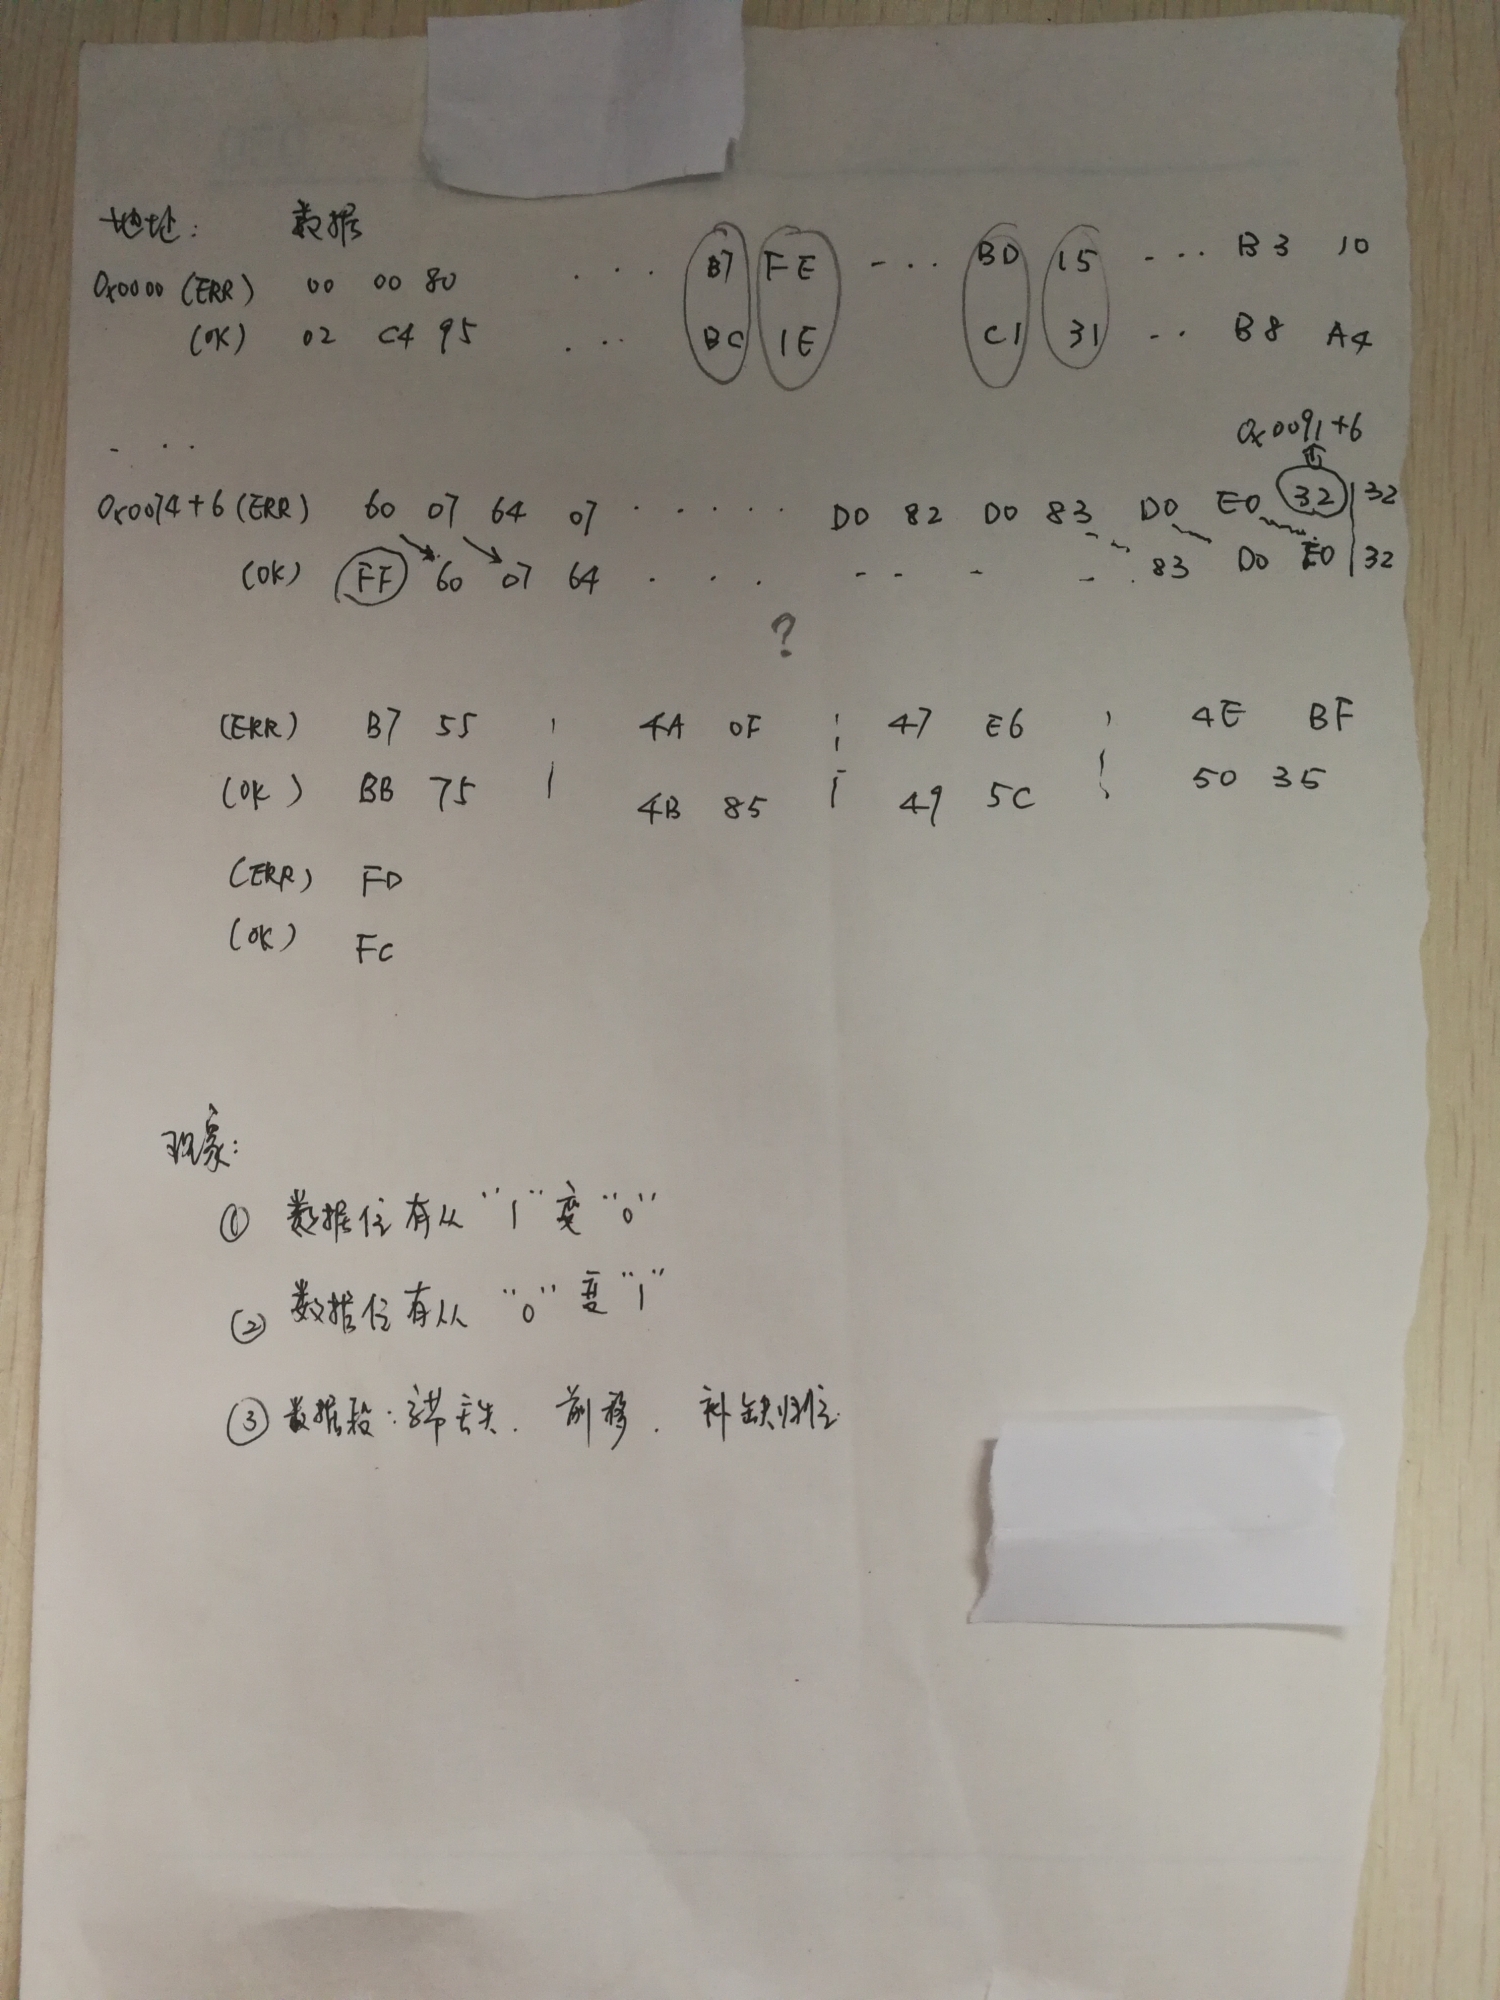 地址: 数据
0x0000 (ERR) 00 00 80 ... B7 FE --.. BD 15 ... B3 10
(OK) 02 C4 95 ... BC 1E C1 31 .. B8 A4
...
0x0091+6
0x0074+6 (ERR) 60 07 64 07 ..... D0 82 D0 83 D0 E0 32 | 32
(OK) FF 60 07 64 ... --- -. 83 D0 E0 | 32
?
(ERR) B7 55 | 4A 0F | 47 E6 | 4E BF
(OK) BB 75 | 4B 85 | 49 5C | 50 35
(ERR) FD
(OK) FC
现象:
① 数据位有从"1"变"0"
② 数据位有从"0"变"1"
③ 数据段: 丢失. 前移. 补缺归位.